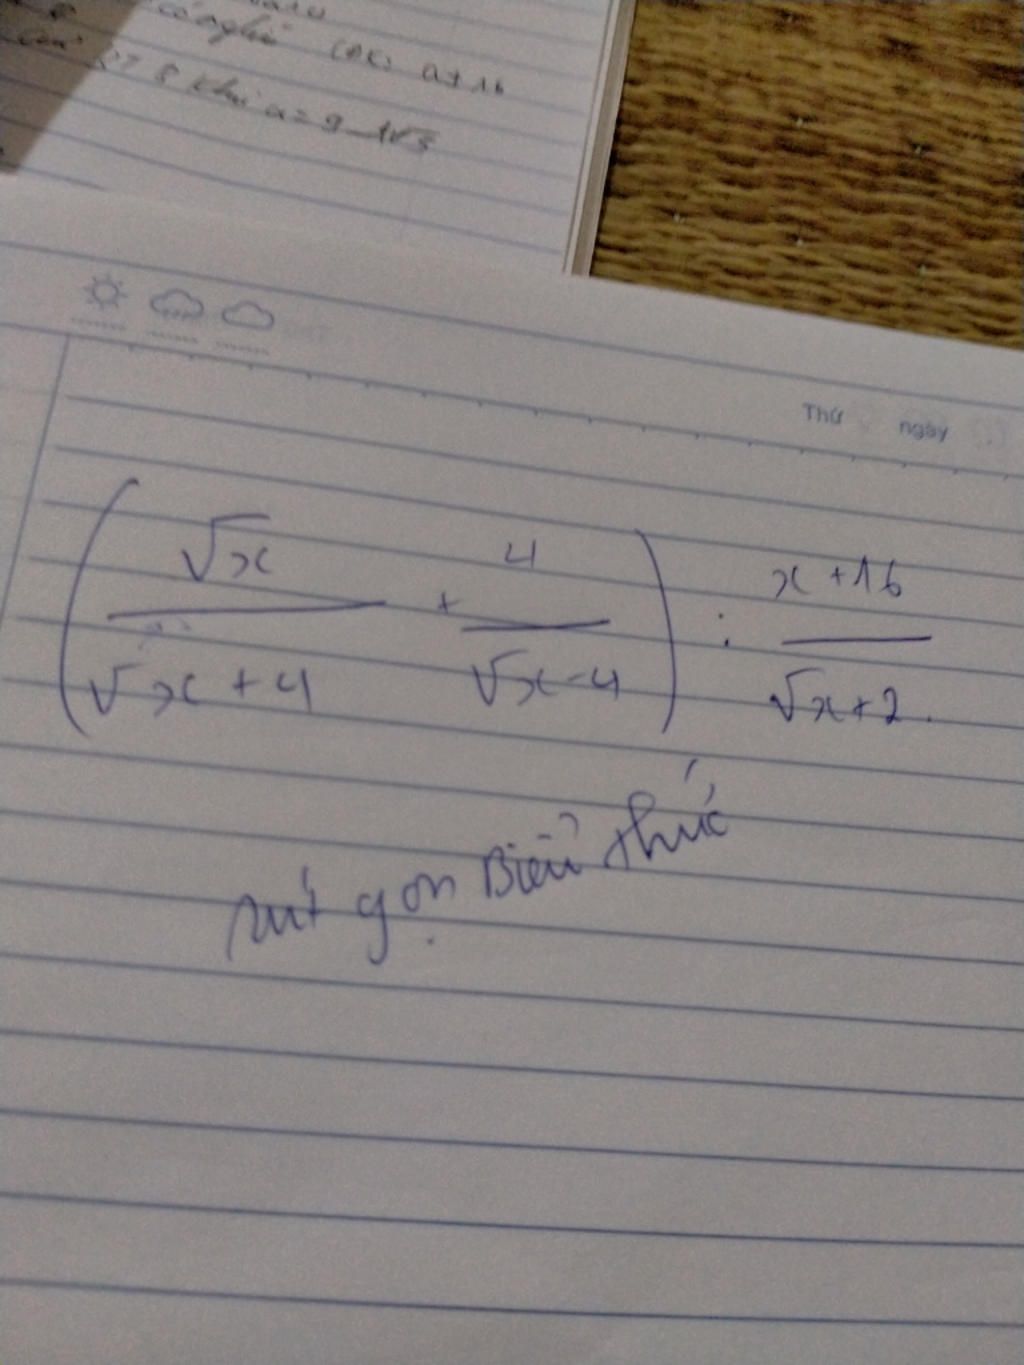 (ĐK: a ≠ 16
8 khi a = 9
Thứ ngày
( √x / (√x + 4) + 4 / (√x - 4) ) : (x + 16) / (√x + 2).
rút gọn Biểu thức